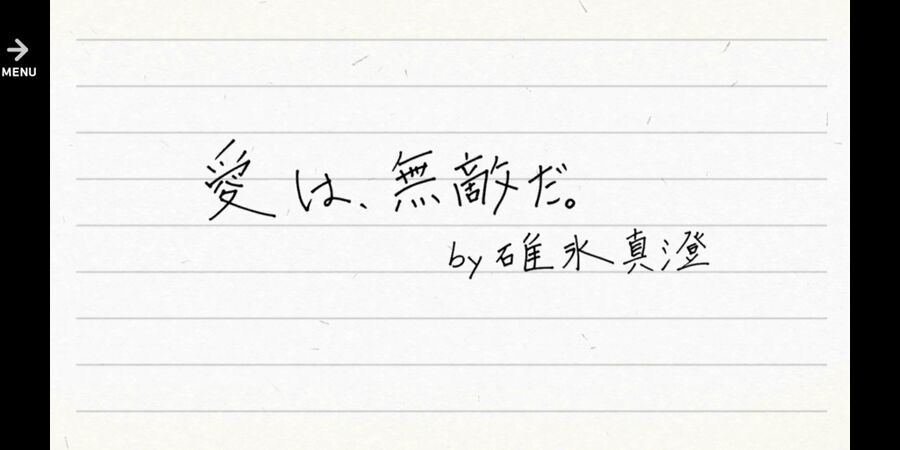 MENU
愛は、無敵だ。
by 碓氷真澄